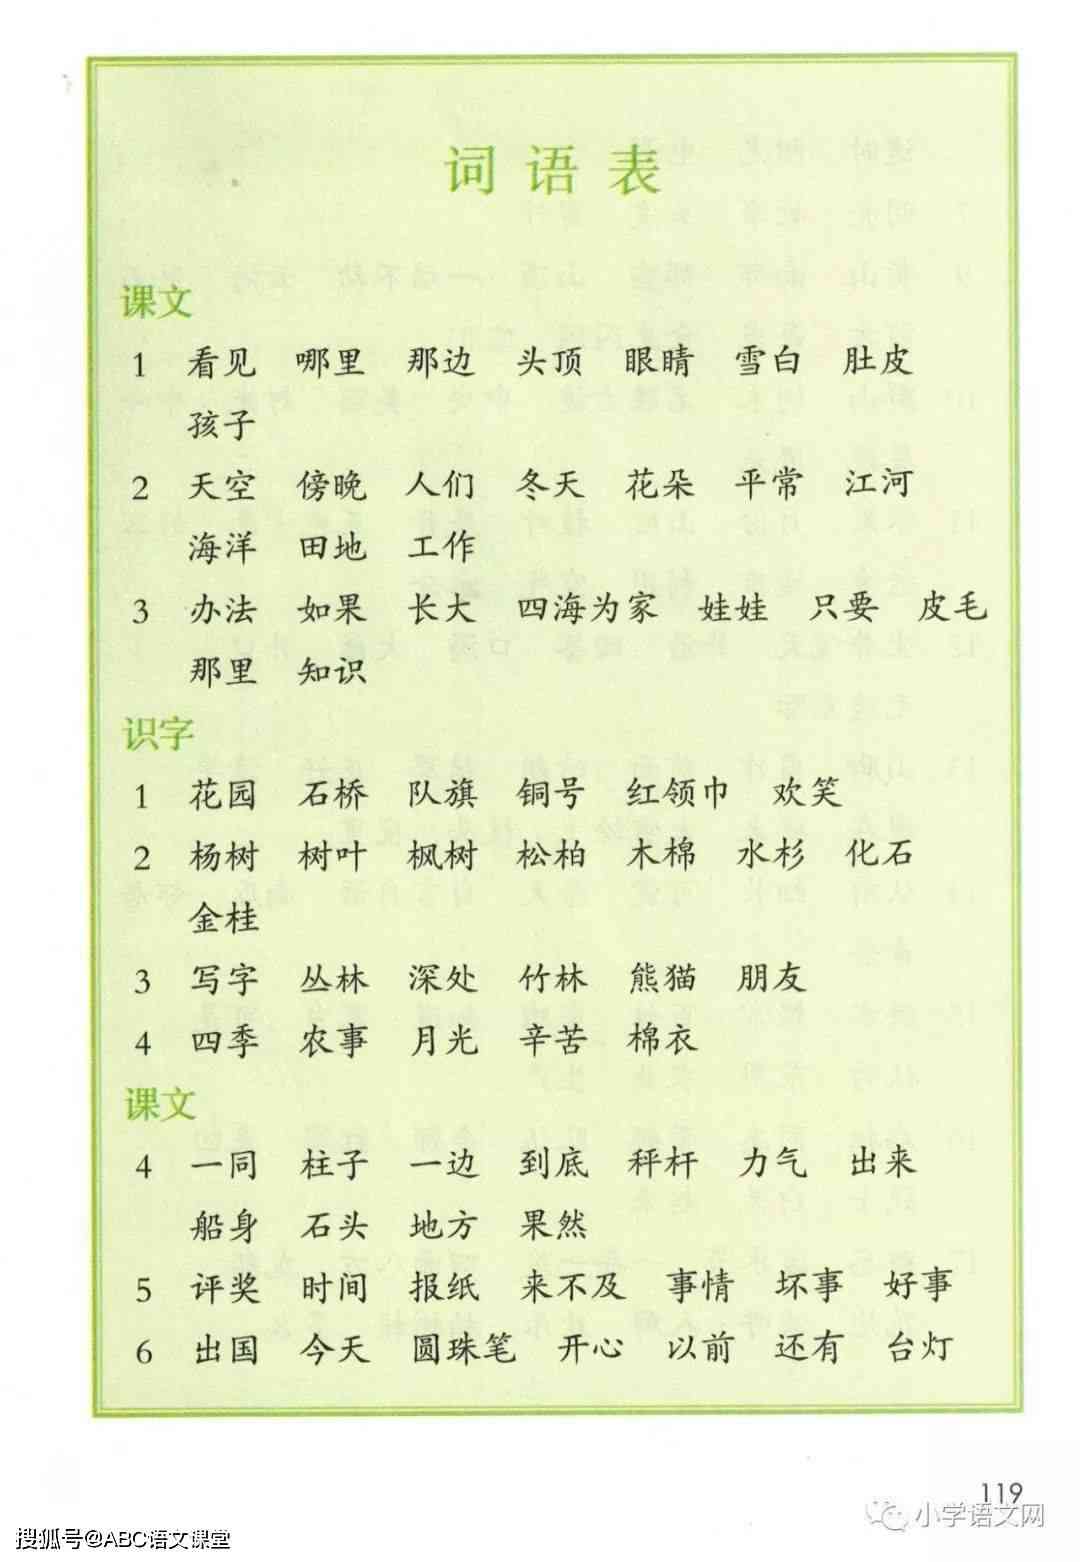 词语表
课文
1 看见 哪里 那边 头顶 眼睛 雪白 肚皮
孩子
2 天空 傍晚 人们 冬天 花朵 平常 江河
海洋 田地 工作
3 办法 如果 长大 四海为家 娃娃 只要 皮毛
那里 知识
识字
1 花园 石桥 队旗 铜号 红领巾 欢笑
2 杨树 树叶 枫树 松柏 木棉 水杉 化石
金桂
3 写字 丛林 深处 竹林 熊猫 朋友
4 四季 农事 月光 辛苦 棉衣
课文
4 一同 柱子 一边 到底 秤杆 力气 出来
船身 石头 地方 果然
5 评奖 时间 报纸 来不及 事情 坏事 好事
6 出国 今天 圆珠笔 开心 以前 还有 台灯
119
小学语文网
搜狐号@ABC语文课堂